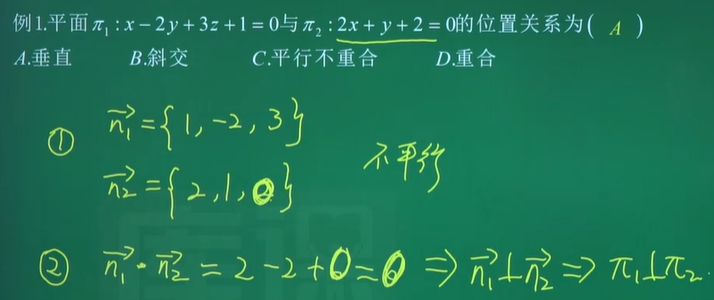 例1.平面π₁:x−2y+3z+1=0与π₂:2x+y+2=0的位置关系为( A )
A.垂直 B.斜交 C.平行不重合 D.重合
① n₁→={1,-2,3} 不平行
n₂→={2,1,0}
② n₁→·n₂→=2-2+0=0⇒n₁→⊥n₂→⇒π₁⊥π₂.